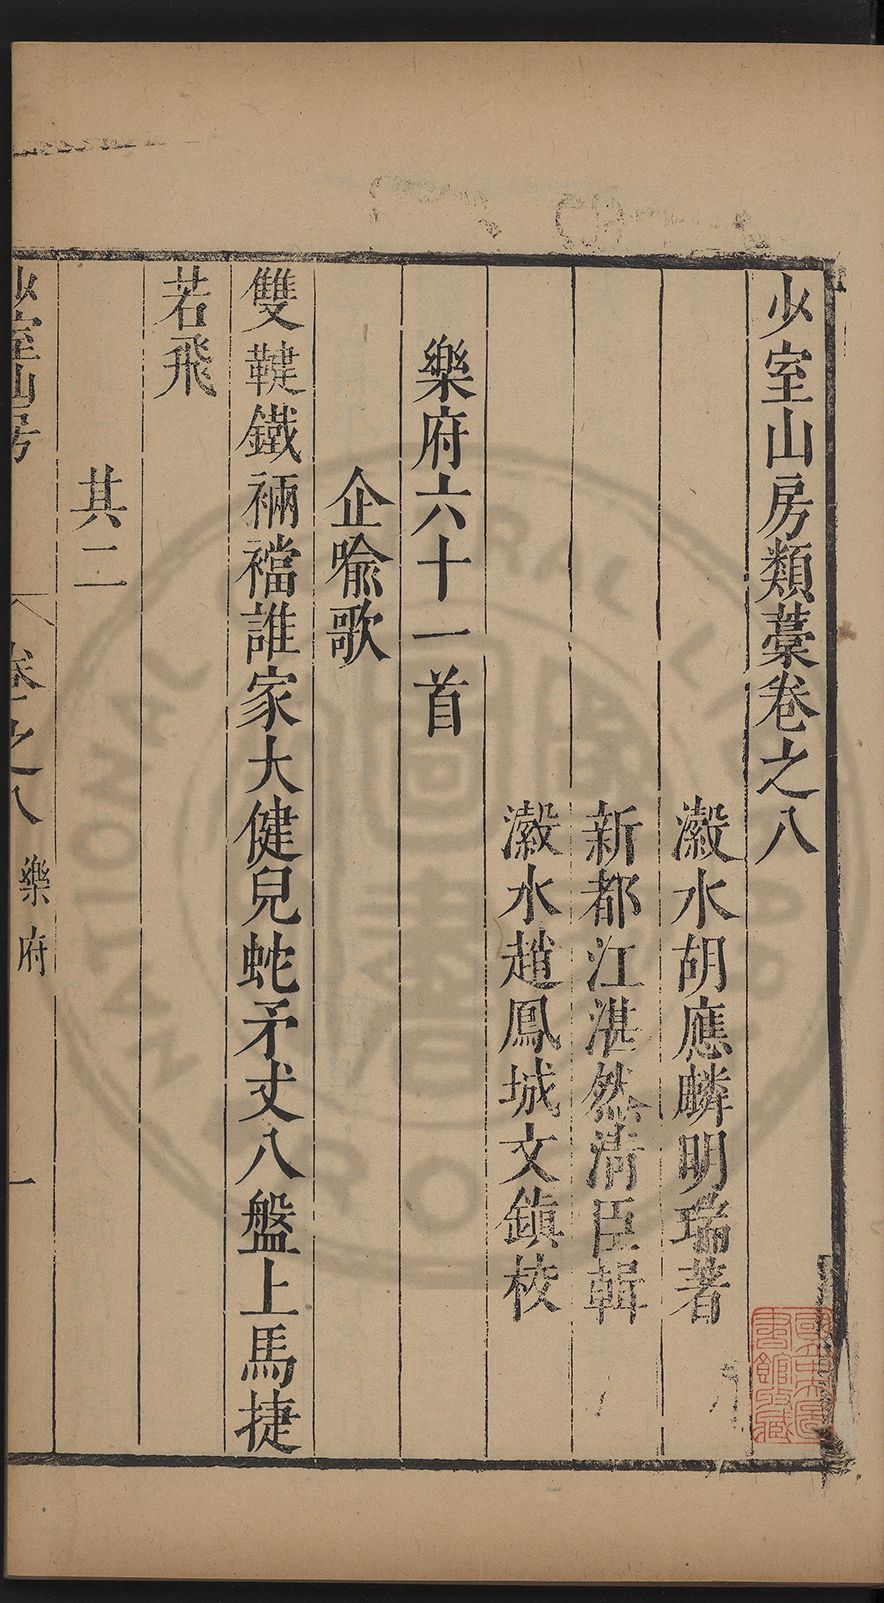 少室山房類藁卷之八
瀫水胡應麟明瑞著
新都江湛然清臣輯
瀫水趙鳳城文鎮校
樂府六十一首
企喻歌
雙鞬鐵裲襠誰家大健兒蛇矛丈八盤上馬捷
若飛
其二
少室山房
卷之八
樂府
一
國立中央圖書館收藏